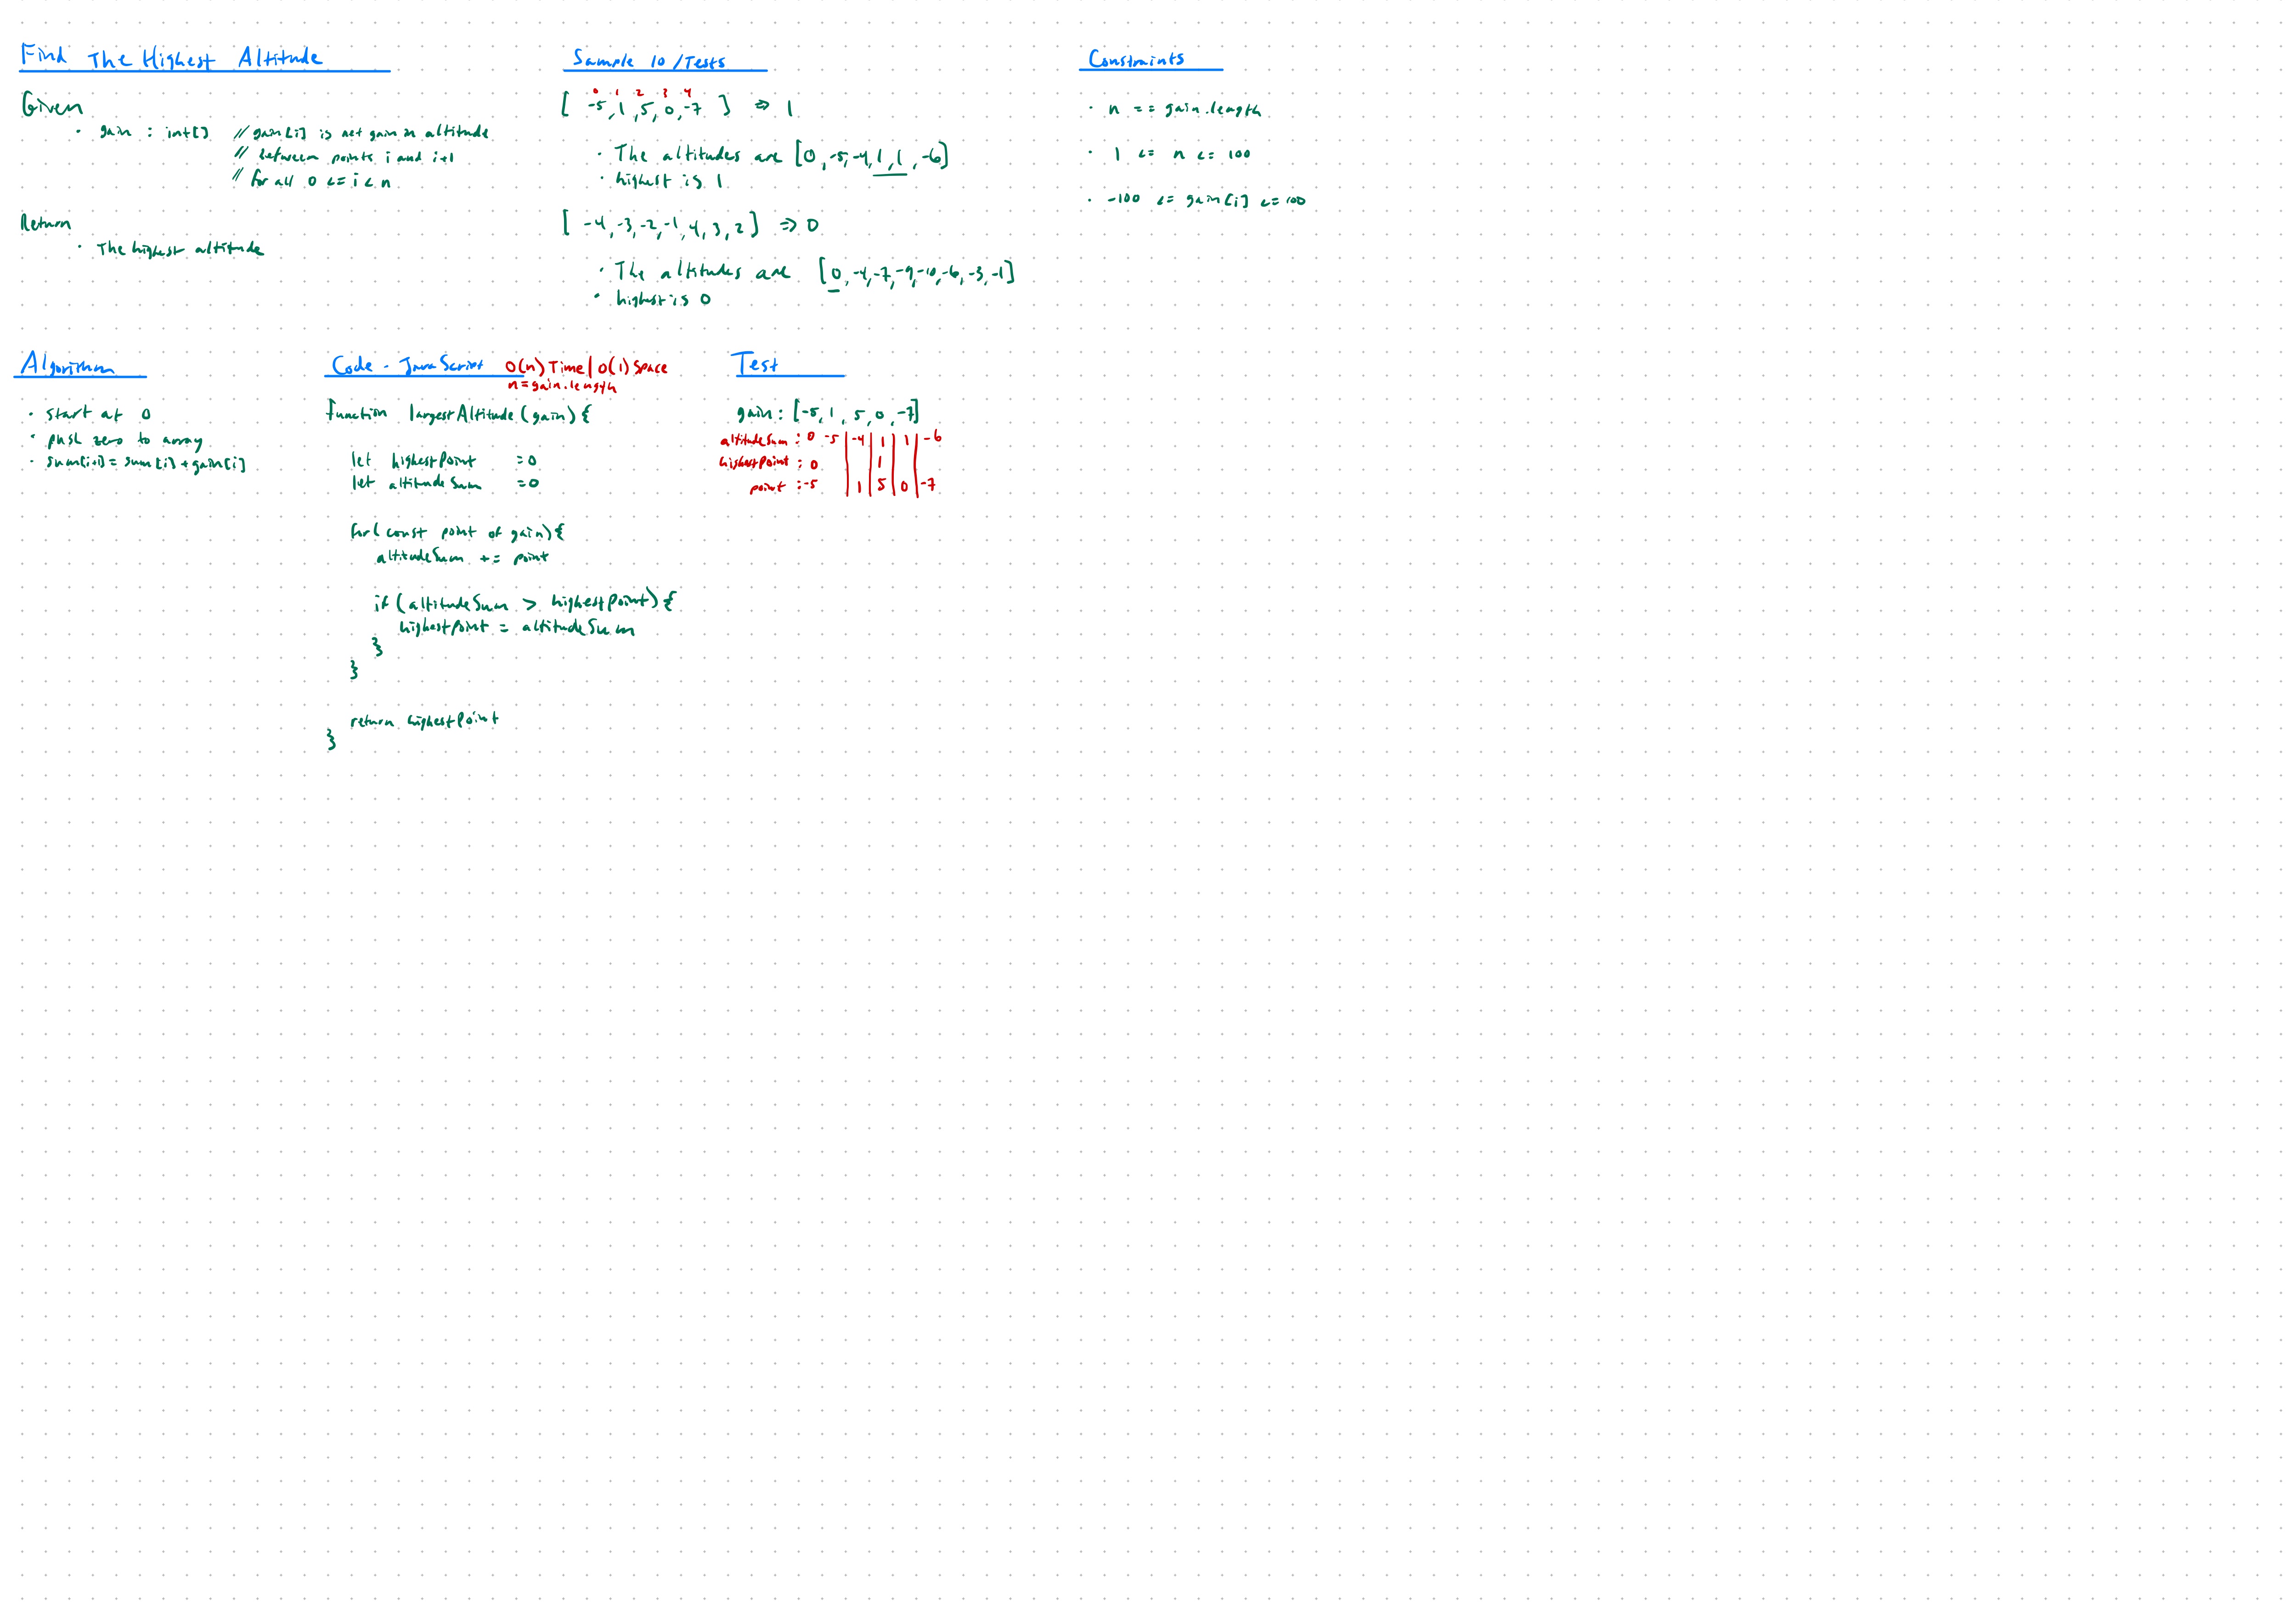 Find The Highest Altitude
Given
· gain : int[] // gain[i] is net gain in altitude
// between points i and i+1
// for all 0 <= i < n
Return
· The highest altitude
Sample IO / Tests
0 1 2 3 4
[ -5, 1, 5, 0, -7 ] => 1
· The altitudes are [0, -5, -4, 1, 1, -6]
· highest is 1
[ -4, -3, -2, -1, 4, 3, 2 ] => 0
· The altitudes are [0, -4, -7, -9, -10, -6, -3, -1]
· highest is 0
Constraints
· n == gain.length
· 1 <= n <= 100
· -100 <= gain[i] <= 100
Algorithm
· start at 0
· push zero to array
· sum[i+1] = sum[i] + gain[i]
Code - JavaScript O(n) Time | O(1) Space
n = gain.length
function largestAltitude (gain) {
let highestPoint = 0
let altitudeSum = 0
for( const point of gain) {
altitudeSum += point
if (altitudeSum > highestPoint) {
highestPoint = altitudeSum
}
}
return highestPoint
}
Test
gain : [-5, 1, 5, 0, -7]
altitudeSum : 0 -5 | -4 | 1 | 1 | -6
highestPoint : 0 | | 1 | |
point : -5 | 1 | 5 | 0 | -7